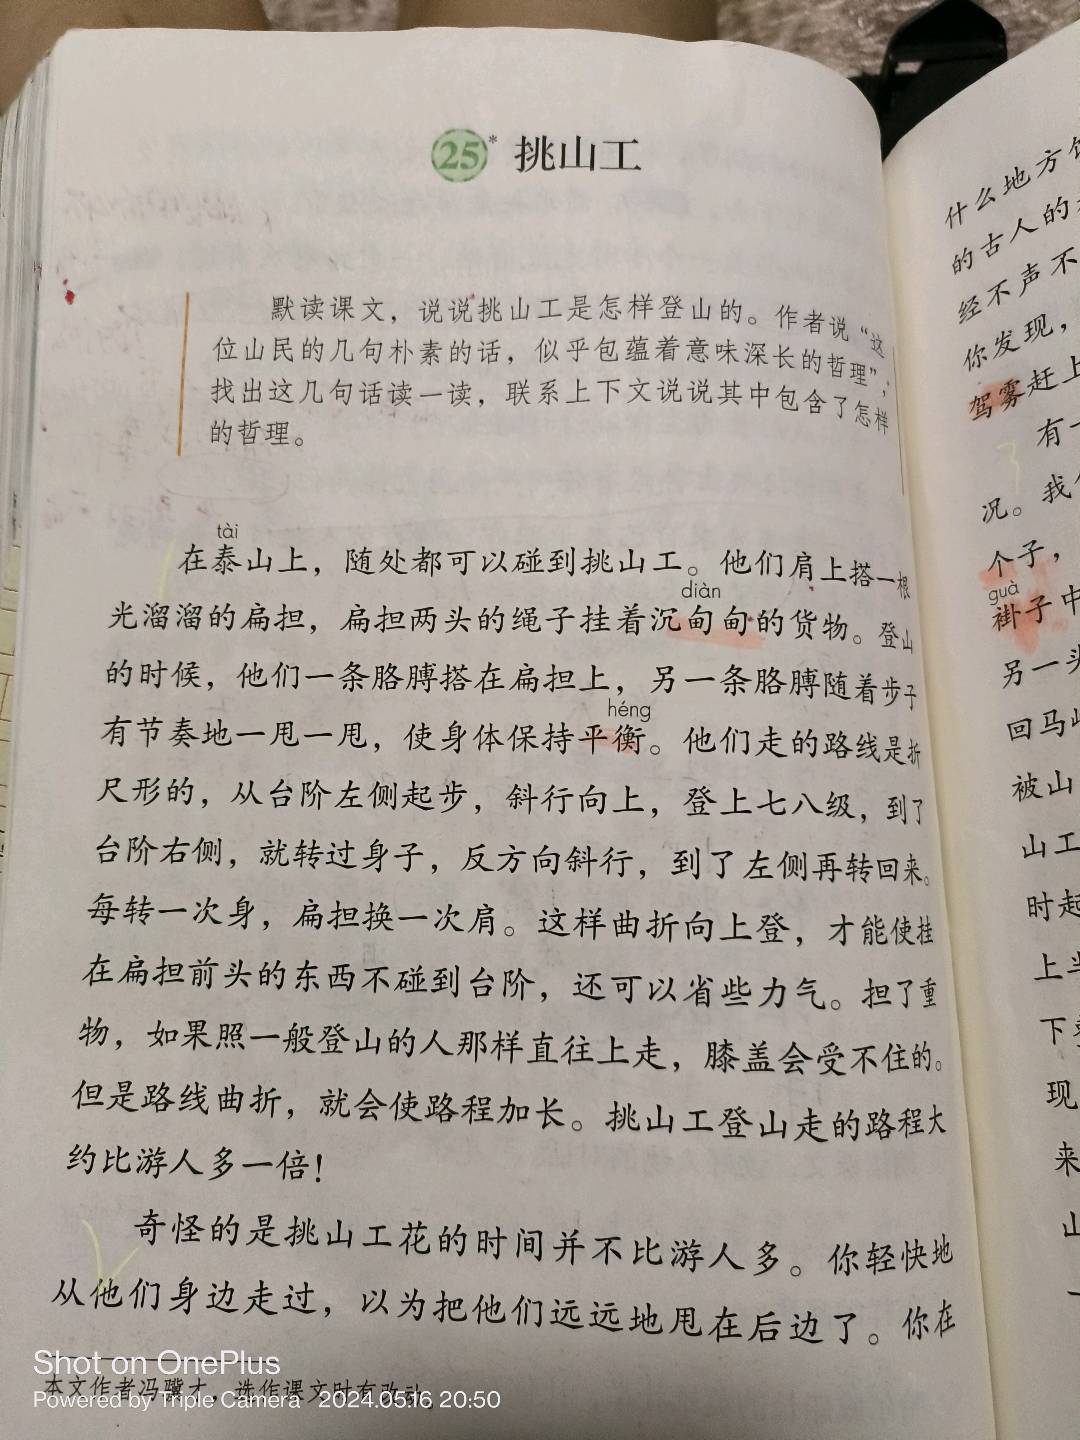 25* 挑山工
默读课文，说说挑山工是怎样登山的。作者说“这
位山民的几句朴素的话，似乎包蕴着意味深长的哲理”，
找出这几句话读一读，联系上下文说说其中包含了怎样
的哲理。
tài
在泰山上，随处都可以碰到挑山工。他们肩上搭一根
diàn
光溜溜的扁担，扁担两头的绳子挂着沉甸甸的货物。登山
的时候，他们一条胳膊搭在扁担上，另一条胳膊随着步子
héng
有节奏地一甩一甩，使身体保持平衡。他们走的路线是折
尺形的，从台阶左侧起步，斜行向上，登上七八级，到了
台阶右侧，就转过身子，反方向斜行，到了左侧再转回来。
每转一次身，扁担换一次肩。这样曲折向上登，才能使挂
在扁担前头的东西不碰到台阶，还可以省些力气。担了重
物，如果照一般登山的人那样直往上走，膝盖会受不住的。
但是路线曲折，就会使路程加长。挑山工登山走的路程大
约比游人多一倍！
奇怪的是挑山工花的时间并不比游人多。你轻快地
从他们身边走过，以为把他们远远地甩在后边了。你在
本文作者冯骥才，选作课文时有改动。
什么地方
的古人的
经不声不
你发现，
驾雾赶上
有一
况。我
个子，
guà
褂子中
另一头
回马
被山
山工
时起
上
下
现
来
山
Shot on OnePlus
Powered by Triple Camera 2024.05.16 20:50